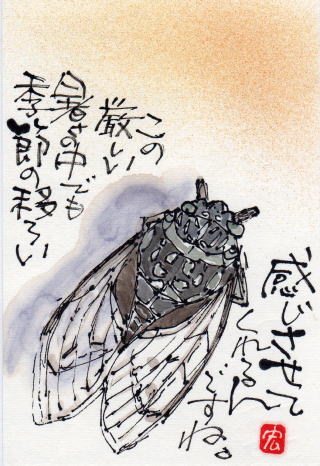 この
厳しい
暑さの中でも
季節の移ろい
感じさせて
くれるん
ですね。
宏